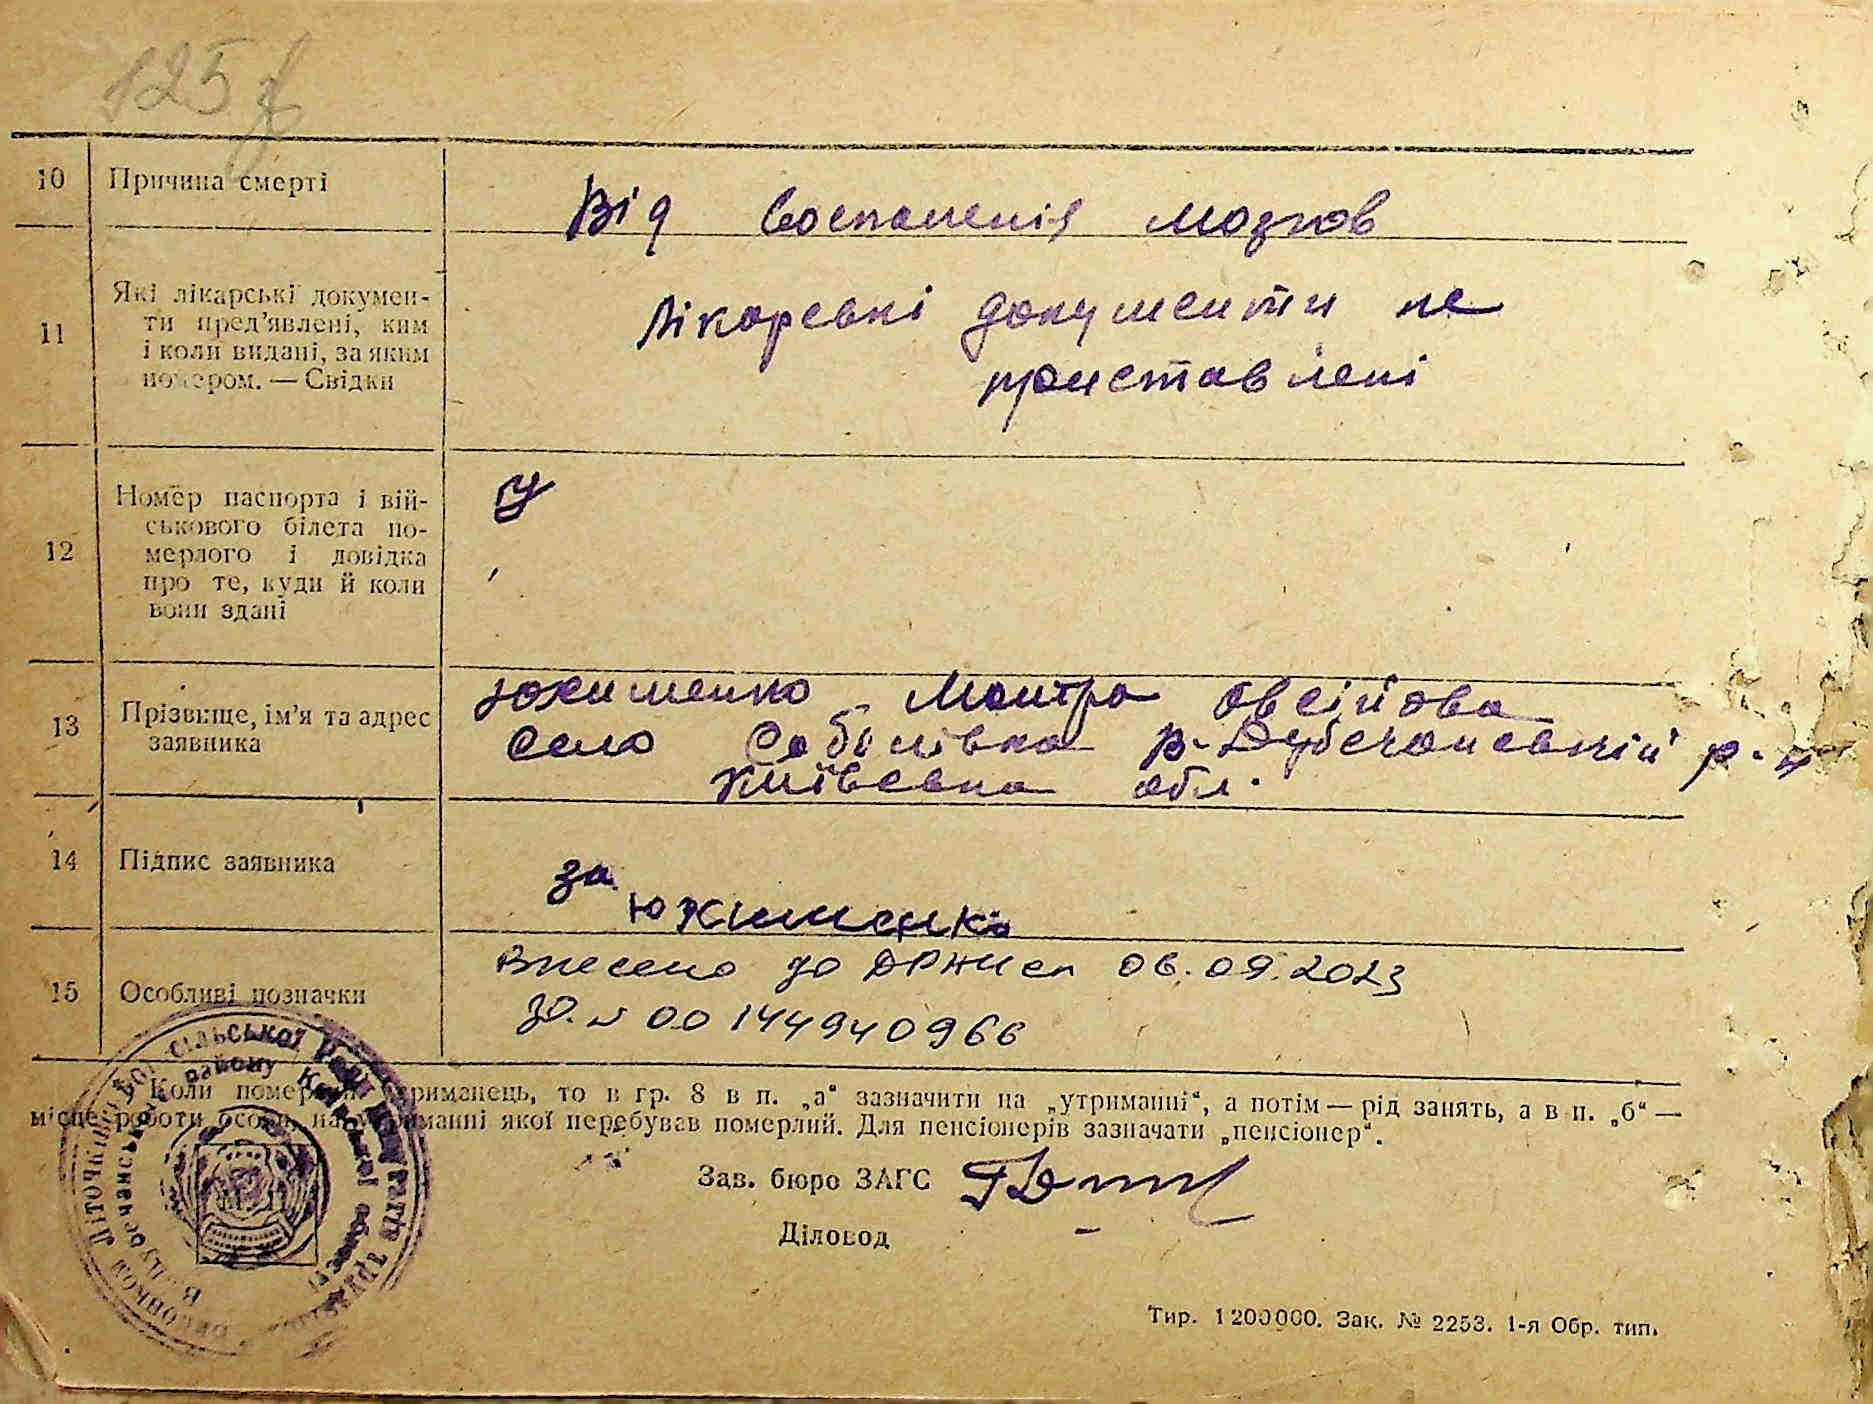 125
10 Причина смерті
Від воспаленія мозков
11 Які лікарські документи
ти пред’явлені, ким
і коли видані, за яким
номером. — Свідки
Лікарські документи не
приставлені
12 Номер паспорта і вій-
ськового білета по-
мерлого і довідка
про те, куди й коли
вони здані
13 Прізвище, ім’я та адрес
заявника
Южименко Мотря Овсійова
село Соболівка В-Дубечанський р-н
Київська обл.
14 Підпис заявника
за
Южименко
15 Особливі позначки
Внесено до ДРАЦСГ 06.09.2023
за. № 00144940966
Коли померлий утриманець, то в гр. 8 в п. „а“ зазначити на „утриманні“, а потім — рід занять, а в п. „б“ —
місце роботи особи, на утриманні якої перебував померлий. Для пенсіонерів зазначати „пенсіонер“.
Зав. бюро ЗАГС
Діловод
сільської Ради депутатів трудящих
району Київської області
Тир. 1200000. Зак. № 2253. 1-я Обр. тип.